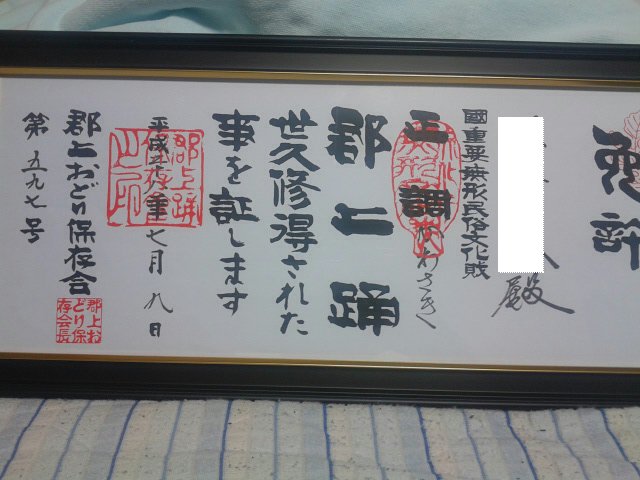 免許
殿
國重要無形民俗文化財
正調 かわさき
郡上踊
世久修得された
事を証します
平成二十八年七月九日
郡上おどり保存会
郡上お
どり保
存会長
第五九七号